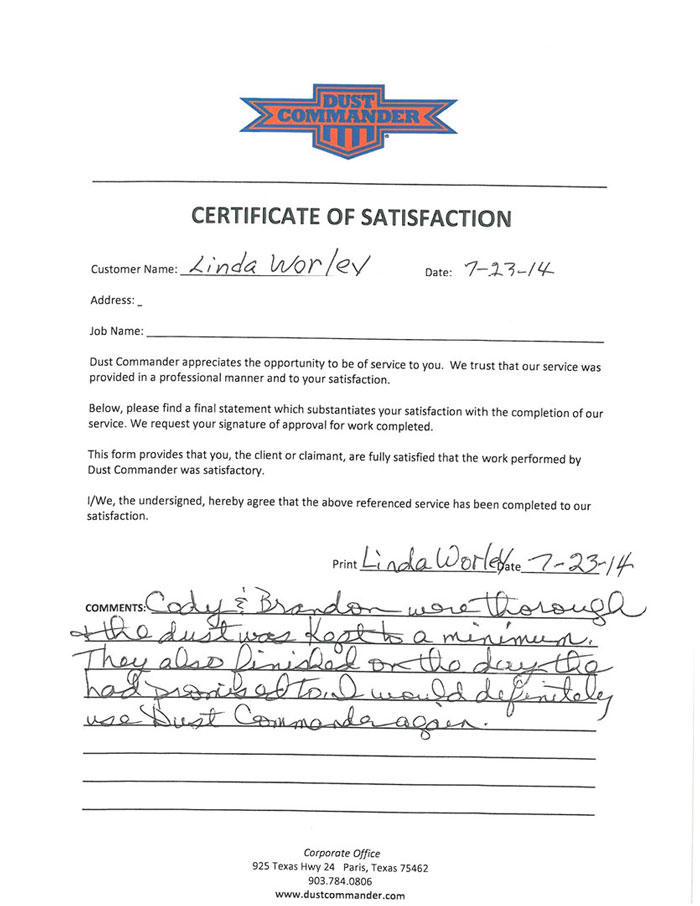 DUST
COMMANDER
CERTIFICATE OF SATISFACTION
Customer Name: Linda Worley Date: 7-23-14
Address: _
Job Name:
Dust Commander appreciates the opportunity to be of service to you. We trust that our service was
provided in a professional manner and to your satisfaction.
Below, please find a final statement which substantiates your satisfaction with the completion of our
service. We request your signature of approval for work completed.
This form provides that you, the client or claimant, are fully satisfied that the work performed by
Dust Commander was satisfactory.
I/We, the undersigned, hereby agree that the above referenced service has been completed to our
satisfaction.
Print Linda Worley Date 7-23-14
COMMENTS: Cody & Brandon were thorough
& the dust was kept to a minimum.
They also finished on the day the
had promised to. I would definitely
use Dust Commander again.
Corporate Office
925 Texas Hwy 24 Paris, Texas 75462
903.784.0806
www.dustcommander.com